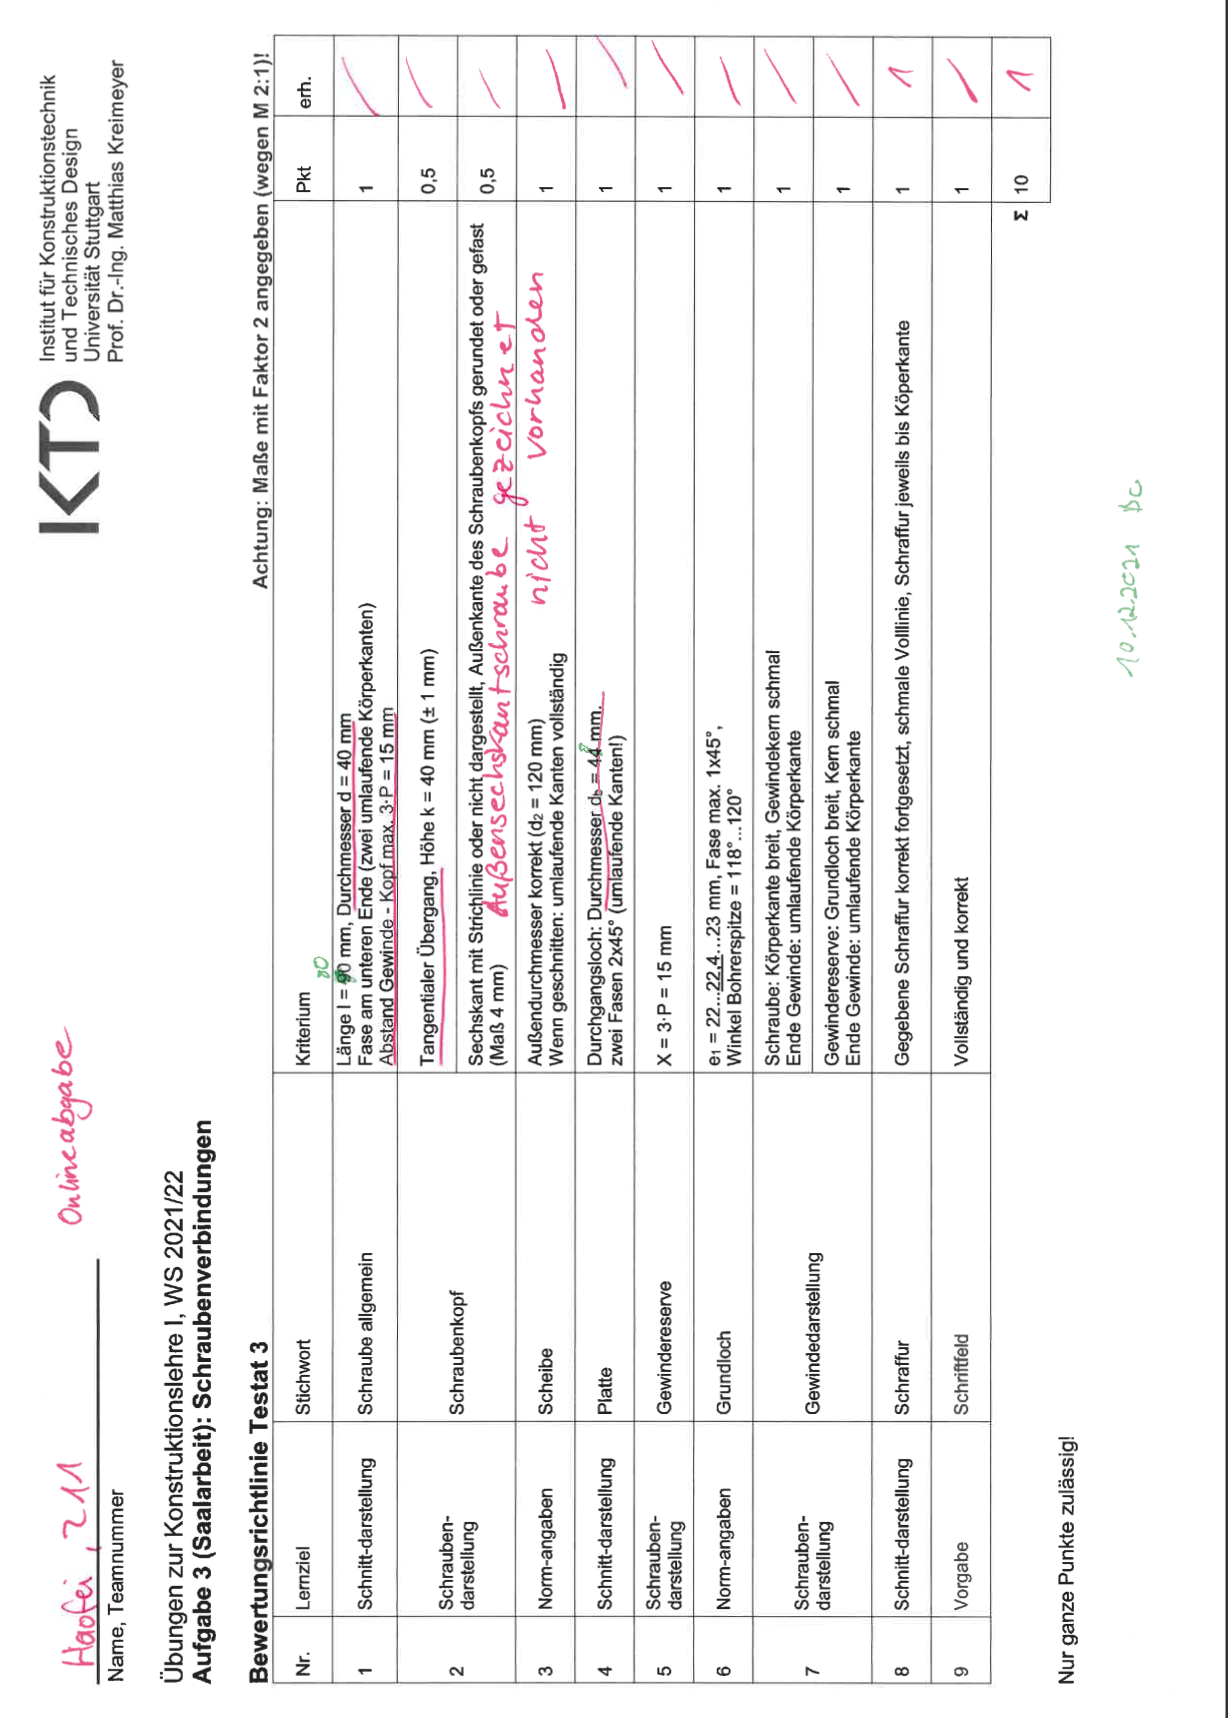 Haofei, 211
Onlineabgabe
Name, Teamnummer
KTD
Institut für Konstruktionstechnik
und Technisches Design
Universität Stuttgart
Prof. Dr.-Ing. Matthias Kreimeyer
Übungen zur Konstruktionslehre I, WS 2021/22
Aufgabe 3 (Saalarbeit): Schraubenverbindungen
Bewertungsrichtlinie Testat 3
Achtung: Maße mit Faktor 2 angegeben (wegen M 2:1)!
Nr. Lernziel Stichwort Kriterium Pkt erh.
1 Schnitt-darstellung Schraube allgemein Länge l = 90 mm, Durchmesser d = 40 mm 1 /
80
Fase am unteren Ende (zwei umlaufende Körperkanten)
Abstand Gewinde - Kopf max. 3·P = 15 mm
2 Schrauben-
darstellung
Schraubenkopf
Tangentialer Übergang, Höhe k = 40 mm (± 1 mm) 0,5 /
Sechskant mit Strichlinie oder nicht dargestellt, Außenkante des Schraubenkopfs gerundet oder gefast 0,5 /
(Maß 4 mm) Außensechskantschraube gezeichnet
3 Norm-angaben Scheibe Außendurchmesser korrekt (d2 = 120 mm) nicht vorhanden 1 /
Wenn geschnitten: umlaufende Kanten vollständig
4 Schnitt-darstellung Platte Durchgangsloch: Durchmesser db = 44 mm. 1 /
8
zwei Fasen 2x45° (umlaufende Kanten!)
5 Schrauben-
darstellung
Gewindereserve X = 3·P = 15 mm 1 /
6 Norm-angaben Grundloch e1 = 22...22,4...23 mm, Fase max. 1x45°, 1 /
Winkel Bohrerspitze = 118°...120°
7 Schrauben-
darstellung
Gewindedarstellung
Schraube: Körperkante breit, Gewindekern schmal 1 /
Ende Gewinde: umlaufende Körperkante
Gewindereserve: Grundloch breit, Kern schmal 1 /
Ende Gewinde: umlaufende Körperkante
8 Schnitt-darstellung Schraffur Gegebene Schraffur korrekt fortgesetzt, schmale Volllinie, Schraffur jeweils bis Köperkante 1 1
9 Vorgabe Schriftfeld Vollständig und korrekt 1 /
Σ 10 1
Nur ganze Punkte zulässig!
10.12.2021 DC